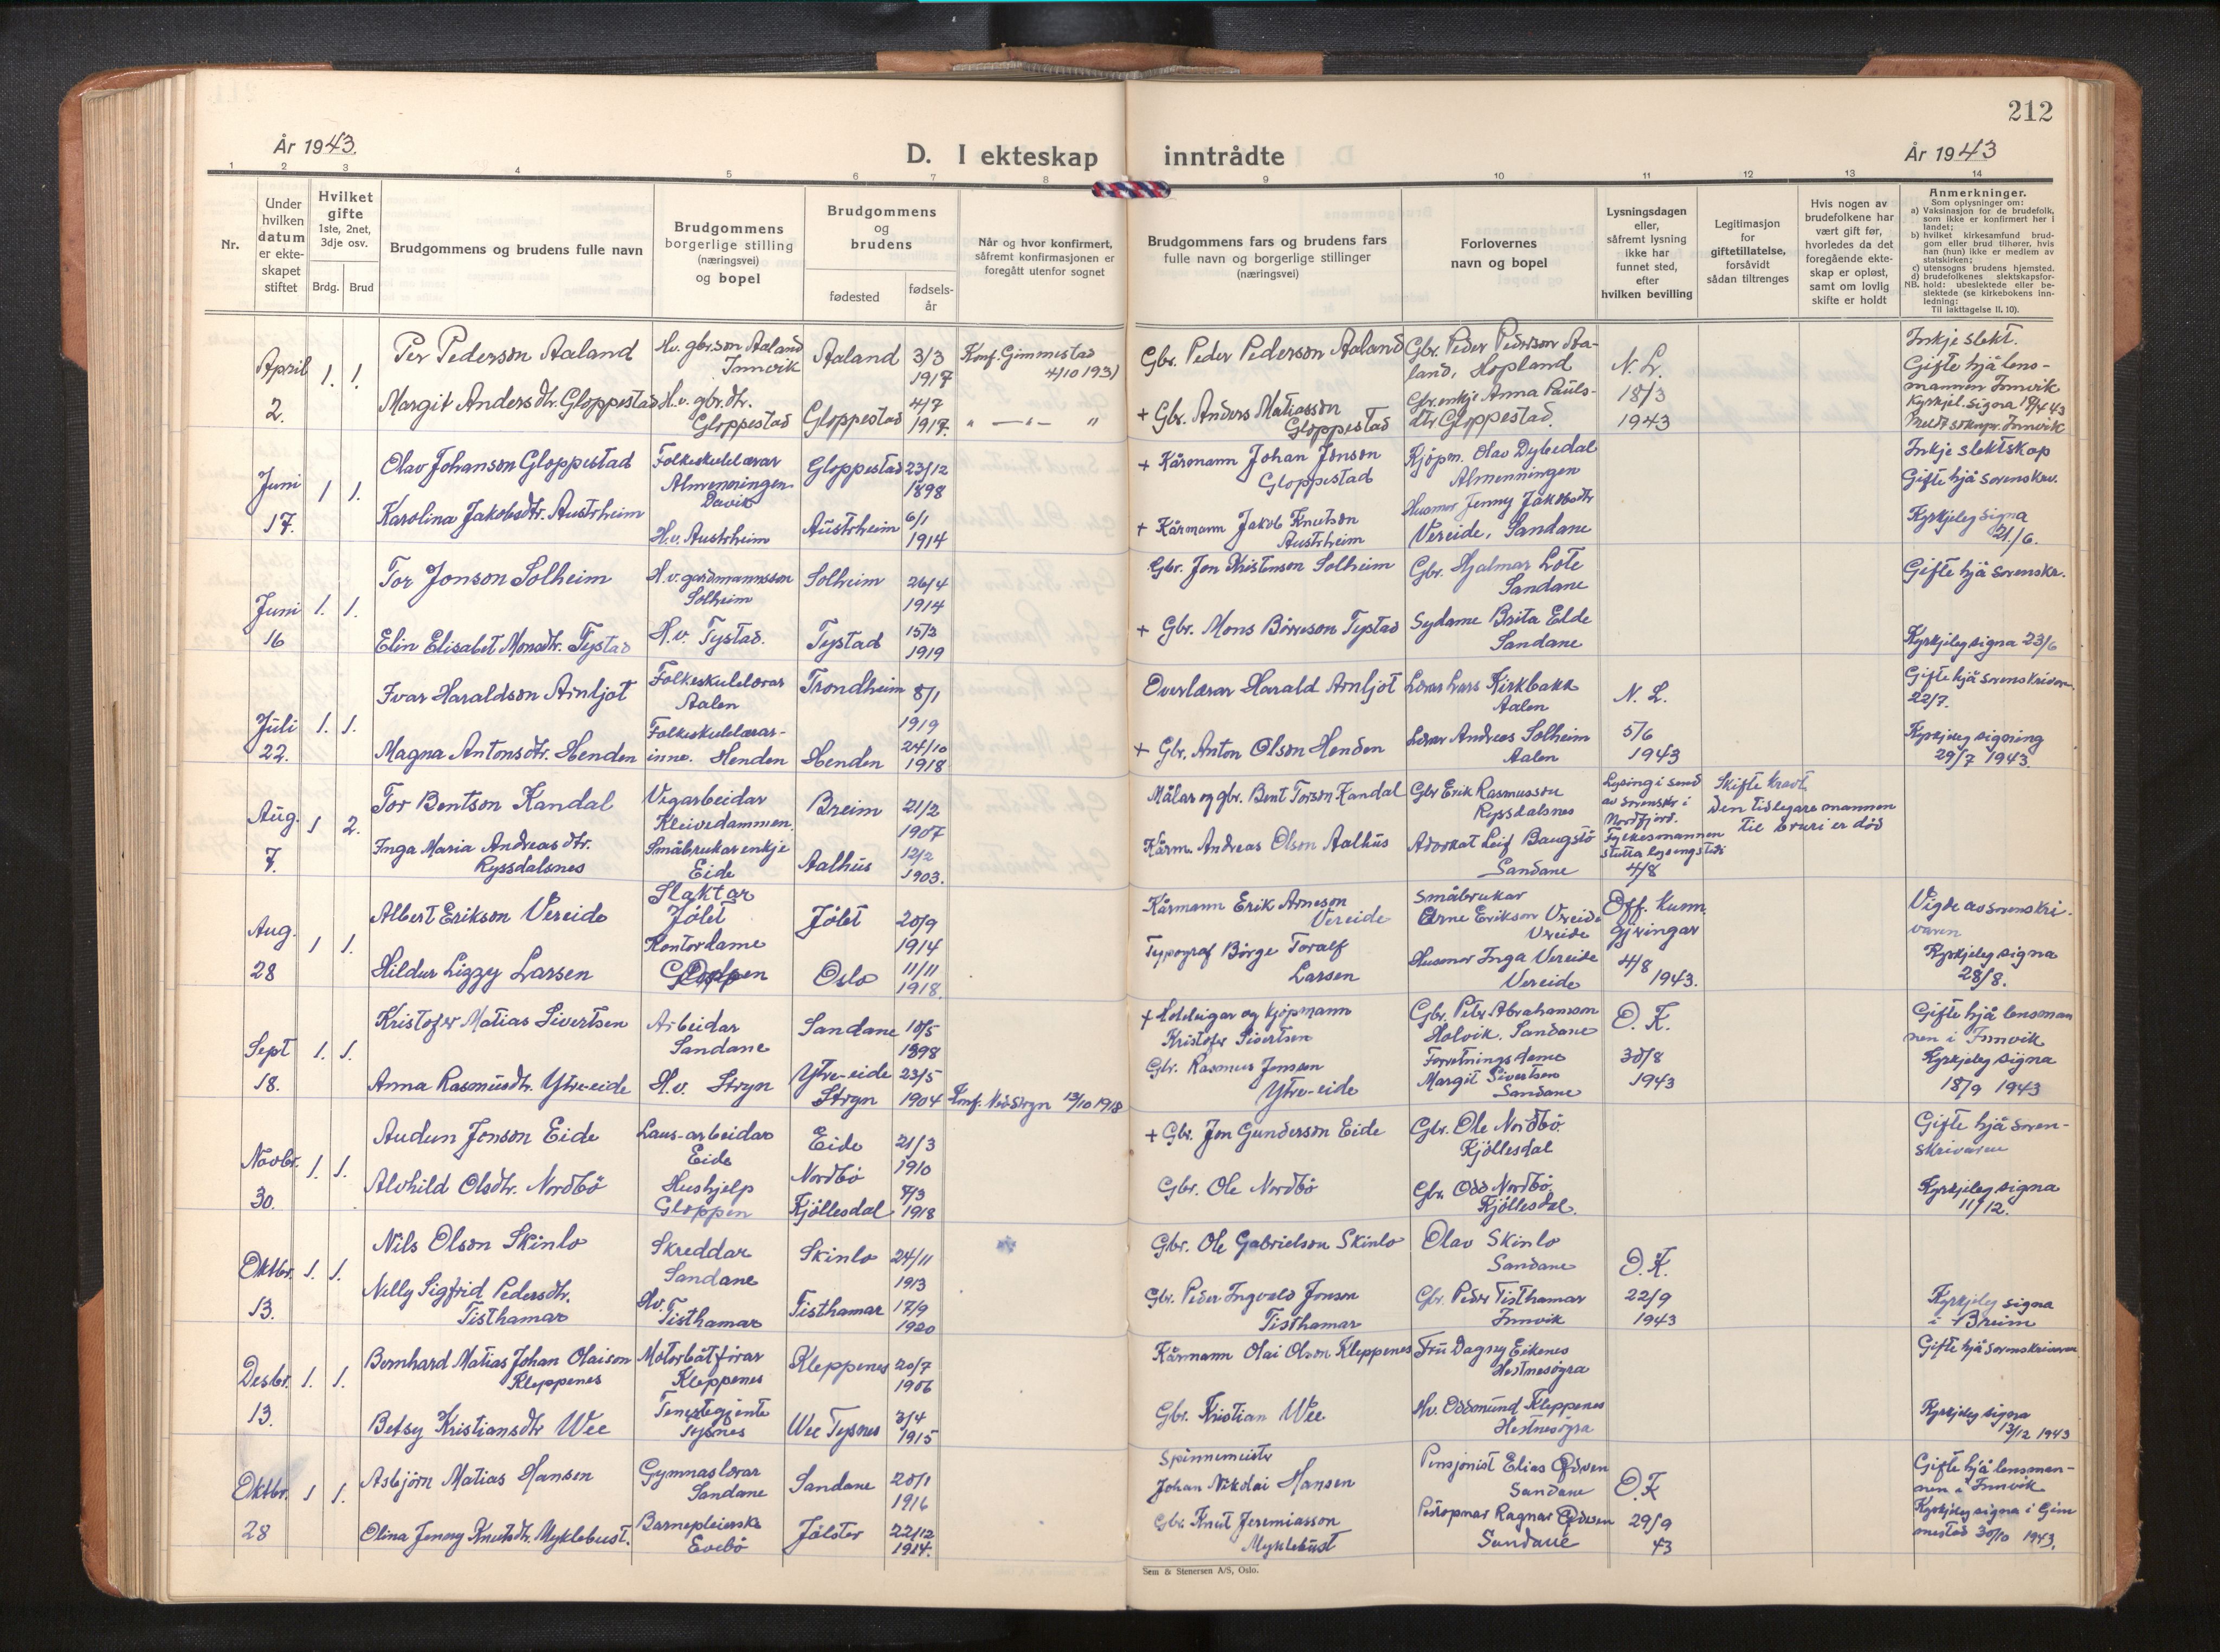 212
År 1943.
D. I ekteskap inntrådte
År 1943
1 2 3 4 5 6 7 8 9 10 11 12 13 14
Nr.
Under hvilken datum er ekte-skapet stiftet
Hvilket gifte 1ste, 2net, 3dje osv.
Brdg. Brud
Brudgommens og brudens fulle navn
Brudgommens borgerlige stilling (næringsvei) og bopel
Brudgommens og brudens
fødested
fødsels-år
Når og hvor konfirmert, såfremt konfirmasjonen er foregått utenfor sognet
Brudgommens fars og brudens fars fulle navn og borgerlige stillinger (næringsvei)
Forlovernes navn og bopel
Lysningsdagen eller, såfremt lysning ikke har funnet sted, efter hvilken bevilling
Legitimasjon for giftetillatelse, forsåvidt sådan tiltrenges
Hvis nogen av brudefolkene har vært gift før, hvorledes da det foregående ekte-skap er opløst, samt om lovlig skifte er holdt
Anmerkninger.
Som oplysninger om:
a) Vaksinasjon for de brudefolk, som ikke er konfirmert her i landet;
b) hvilket kirkesamfund brud-gom eller brud tilhører, hvis han (hun) ikke er medlem av statskirken;
c) utensogns brudens hjemsted.
d) brudefolkenes slektskapsfor-hold: ubeslektede eller be-slektede (se kirkebokens inn-ledning:
NB.
Til iakttagelse II. 10).
April 2. 1. 1.
Per Pederson Aaland
Hv. gbr.son Aaland Innvik
Aaland 3/3 1917
Konf. Gimmestad 4/10 1931
Gbr. Peder Pederson Aaland
Gbr. Peder Pederson Aa-land, Hopland
N. L. 18/3 1943
Inkje slekt.
Gifte hjå lens-mannen Innvik
Kyrkjel. signa 18/4 43
Margit Andersdtr. Gloppestad
H.v. gbr.dtr. Gloppestad
Gloppestad 4/7 1917.
" — " — "
+ Gbr. Anders Matiasson Gloppestad
Gbr.enkje Anna Pauls-dtr Gloppestad.
Juni 17. 1 1.
Olav Johanson Gloppestad
Folkeskulelærar Almenningen Davik
Gloppestad 23/12 1898
+ Kårmann Johan Jonson Gloppestad
Kjøpm. Olav Dybedal Almenningen
Inkje slektskap
Gifte hjå sorenskr.
Karolina Jakobsdtr. Austrheim
H.v. Austrheim
Austrheim 6/1 1914
+ Kårmann Jakob Knutson Austrheim
Husmor Jenny Jakobsdtr Vereide, Sandane
Kyrkjeleg signa 21./6.
Juni 16 1. 1.
Tor Jonson Solheim
H.v. gardmannsson Solheim
Solheim 26/4 1914
Gbr. Jon Kristenson Solheim
Gbr. Hjalmar Lote Sandane
Gifte hjå sorenskr.
Elin Elisabet Monsdtr. Tystad
H.v. Tystad.
Tystad 15/3 1919
+ Gbr. Mons Börreson Tystad
Sydame Brita Elde Sandane
Kyrkjeleg signa 23/6
Juli 22. 1. 1.
Ivar Haraldson Arnljot
Folkeskulelærar Aalen
Trondheim 8/1 1919
Overlærar Harald Arnljot
Lærar Lars Kirkbakk Aalen
N. L. 5/6 1943
Gifte hjå sorenskrivar. 22/7.
Magna Antonsdtr. Henden
Folkeskulelærar-inne. Henden
Henden 24/10 1918
+ Gbr. Anton Olson Henden
Lærar Andreas Solheim Aalen
Kyrkjeleg signing 29/7 1943.
Aug. 7. 1 2.
Tor Bentson Kandal
Vegarbeidar Kleivedammen.
Breim 21/2 1907
Målar og gbr. Bent Torson Kandal
Gbr Erik Rasmusson Ryssdalsnes
Lysing i send av sorenskr i Nordfjord.
Fylkesmannen stutta lysingstidi 4/8
Skifte kravt.
Den tidlegare mannen til bruri er död
Inga Maria Andreasdtr. Ryssdalsnes
Småbrukarenkje Eide
Aalhus 12/2 1903.
Kårm. Andreas Olson Aalhus
Advokat Leif Baugstö Sandane
Aug. 28 1 1.
Albert Erikson Vereide
Slaktar Jölet
Jölet 20/9 1914
Kårmann Erik Arneson Vereide
Småbrukar Arne Erikson Vereide Vereide
Off. kunn-gjeringar 4/8 1943.
Vigde av sorenskri-varen
Hildur Lizzy Larsen
Kontordame Gloppen
Oslo 11/11 1918.
Typograf Börge Toralf Larsen
Husmor Inga Vereide Vereide
Kyrkjeleg signa 28/8.
Sept 18. 1. 1.
Kristofer Matias Sivertsen
Arbeidar Sandane
Sandane 10/5 1898
+ Hoteleigar og kjøpmann Kristofer Sivertsen
Gbr. Peter Abrahamson Holvik, Sandane
O. K. 30/8 1943
Gifte hjå lensman nen i Innvik
Kyrkjeleg signa 18/9 1943
Anna Rasmusdtr. Ytre-eide
H.v. Stryn
Ytre-eide Stryn 23/5 1904
Konf. Nedstryn 13/10 1918
Gbr. Rasmus Jonson Ytre-eide
Forretningsdame Margit Sivertsen Sandane
Novbr. 30. 1. 1.
Audun Jonson Eide
Laus-arbeidar Eide
Eide 21/3 1910
+ Gbr. Jon Gunderson Eide
Gbr. Ole Nordbö Kjöllesdal
Gifte hjå soren-skrivaren
Alvhild Olsdtr. Nordbö
Hushjelp Gloppen
Nordbö Kjöllesdal 7/3 1918
Gbr. Ole Nordbö
Gbr. Odd Nordbö. Kjöllesdal.
Kyrkjeleg signa 11/12.
Oktbr. 13. 1. 1.
Nils Olson Skinlo
Skreddar Sandane
Skinlo 24/11 1913
Gbr. Ole Gabrielson Skinlo
Olav Skinlo Sandane
O. K. 22/9 1943
Nelly Sigfrid Pedersdtr. Tisthamar
Hv. Tisthamar
Tisthamar 17/9 1920
Gbr. Peder Ingvald Jonson Tisthamar
Gbr. Peder Tisthamar Innvik
Kyrkjeleg signa i Breim
Desbr. 13. 1. 1.
Bernhard Matias Johan Olaison Kleppenes
Motorbåtförar Kleppenes
Kleppenes 20/7 1906
Kårmann Olai Olson Kleppenes
Fru Dagny Eikenes Hestnesögra
Gifte hjå sorenskrivaren
Betsy Kristiansdtr Wee
Tenestegjente Tysnes
Wee Tysnes 3/4 1915
Gbr. Kristian Wee
Hv. Oddmund Kleppenes Hestnesögra
Kyrkjeleg signa 13/12 1943
Oktbr. 28 1 1.
Asbjörn Matias Hansen
Gymnaslærar Sandane
Sandane 20/1 1916
Spinnemeister Johan Nikolai Hansen
Pensjonist Elias Sandane
O. K 29/9 43
Gifte hjå lensman-nen i Innvik
Kyrkjeleg signa i Gim mestad 30/10 1943.
Olina Jenny Knutsdtr. Myklebust.
Barnepleierske Evebö
Jölster 22/12 1914.
Gbr. Knut Jeremiasson Myklebust
Ragnar Sandane
Sem & Stenersen A/S, Oslo.